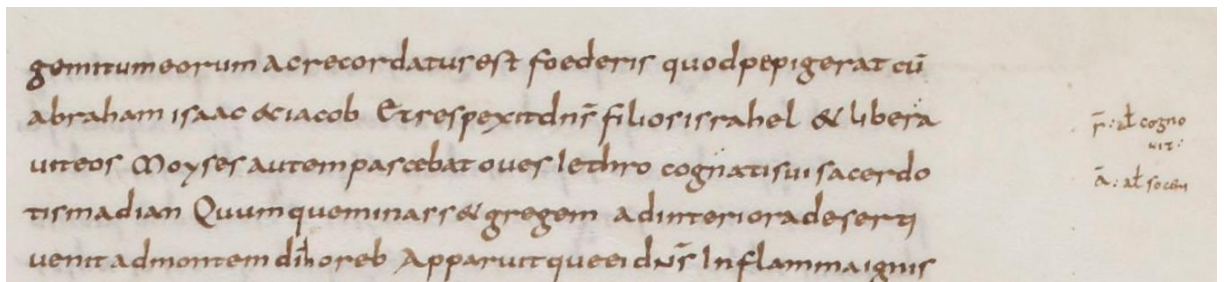 gemitum eorum ac recordatus est foederis quod pepigerat cū
abraham isaac &iacob Et respexit dn̄s filios israhel & libera
uit eos Moyses autem pascebat oues Iethro cognati sui sacerdo
tis madian Quumque minass& gregem ad interiora deserti
uenit ad montem dī horeb Apparuitque ei dn̄s In flamma ignis
r̄: at cogno
uit:
ā: at soceri